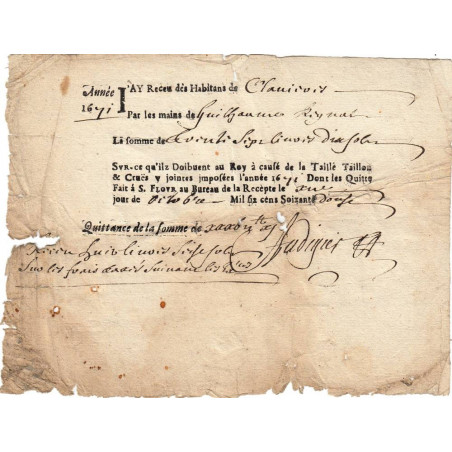 Année I'AY Receu dès Habitans de Clauieres
1671 Par les mains de Guilhaumes Reynal
La somme de trente Sept liures dix sols
SVR-CE qu'ils Doibuent au Roy à cause de la Taille Taillon
& Cruës y jointes imposées l'année 1671 Dont les Quitte
Fait à S. FLOVR au Bureau de la Recepte le
jour de octobre Mil six cens Soixante douse
Quittance de la somme de
huit liures sols
sur les frais